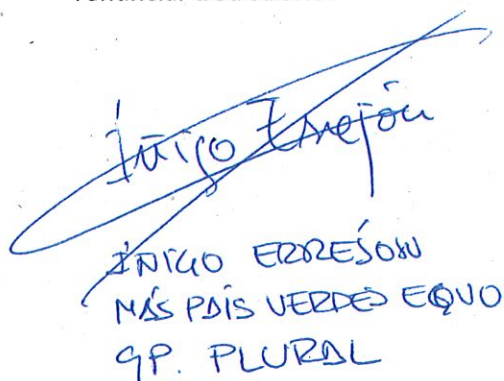 Íñigo Errejón
ÍÑIGO ERREJON
MÁS PAÍS VERDES EQUO
GP. PLURAL